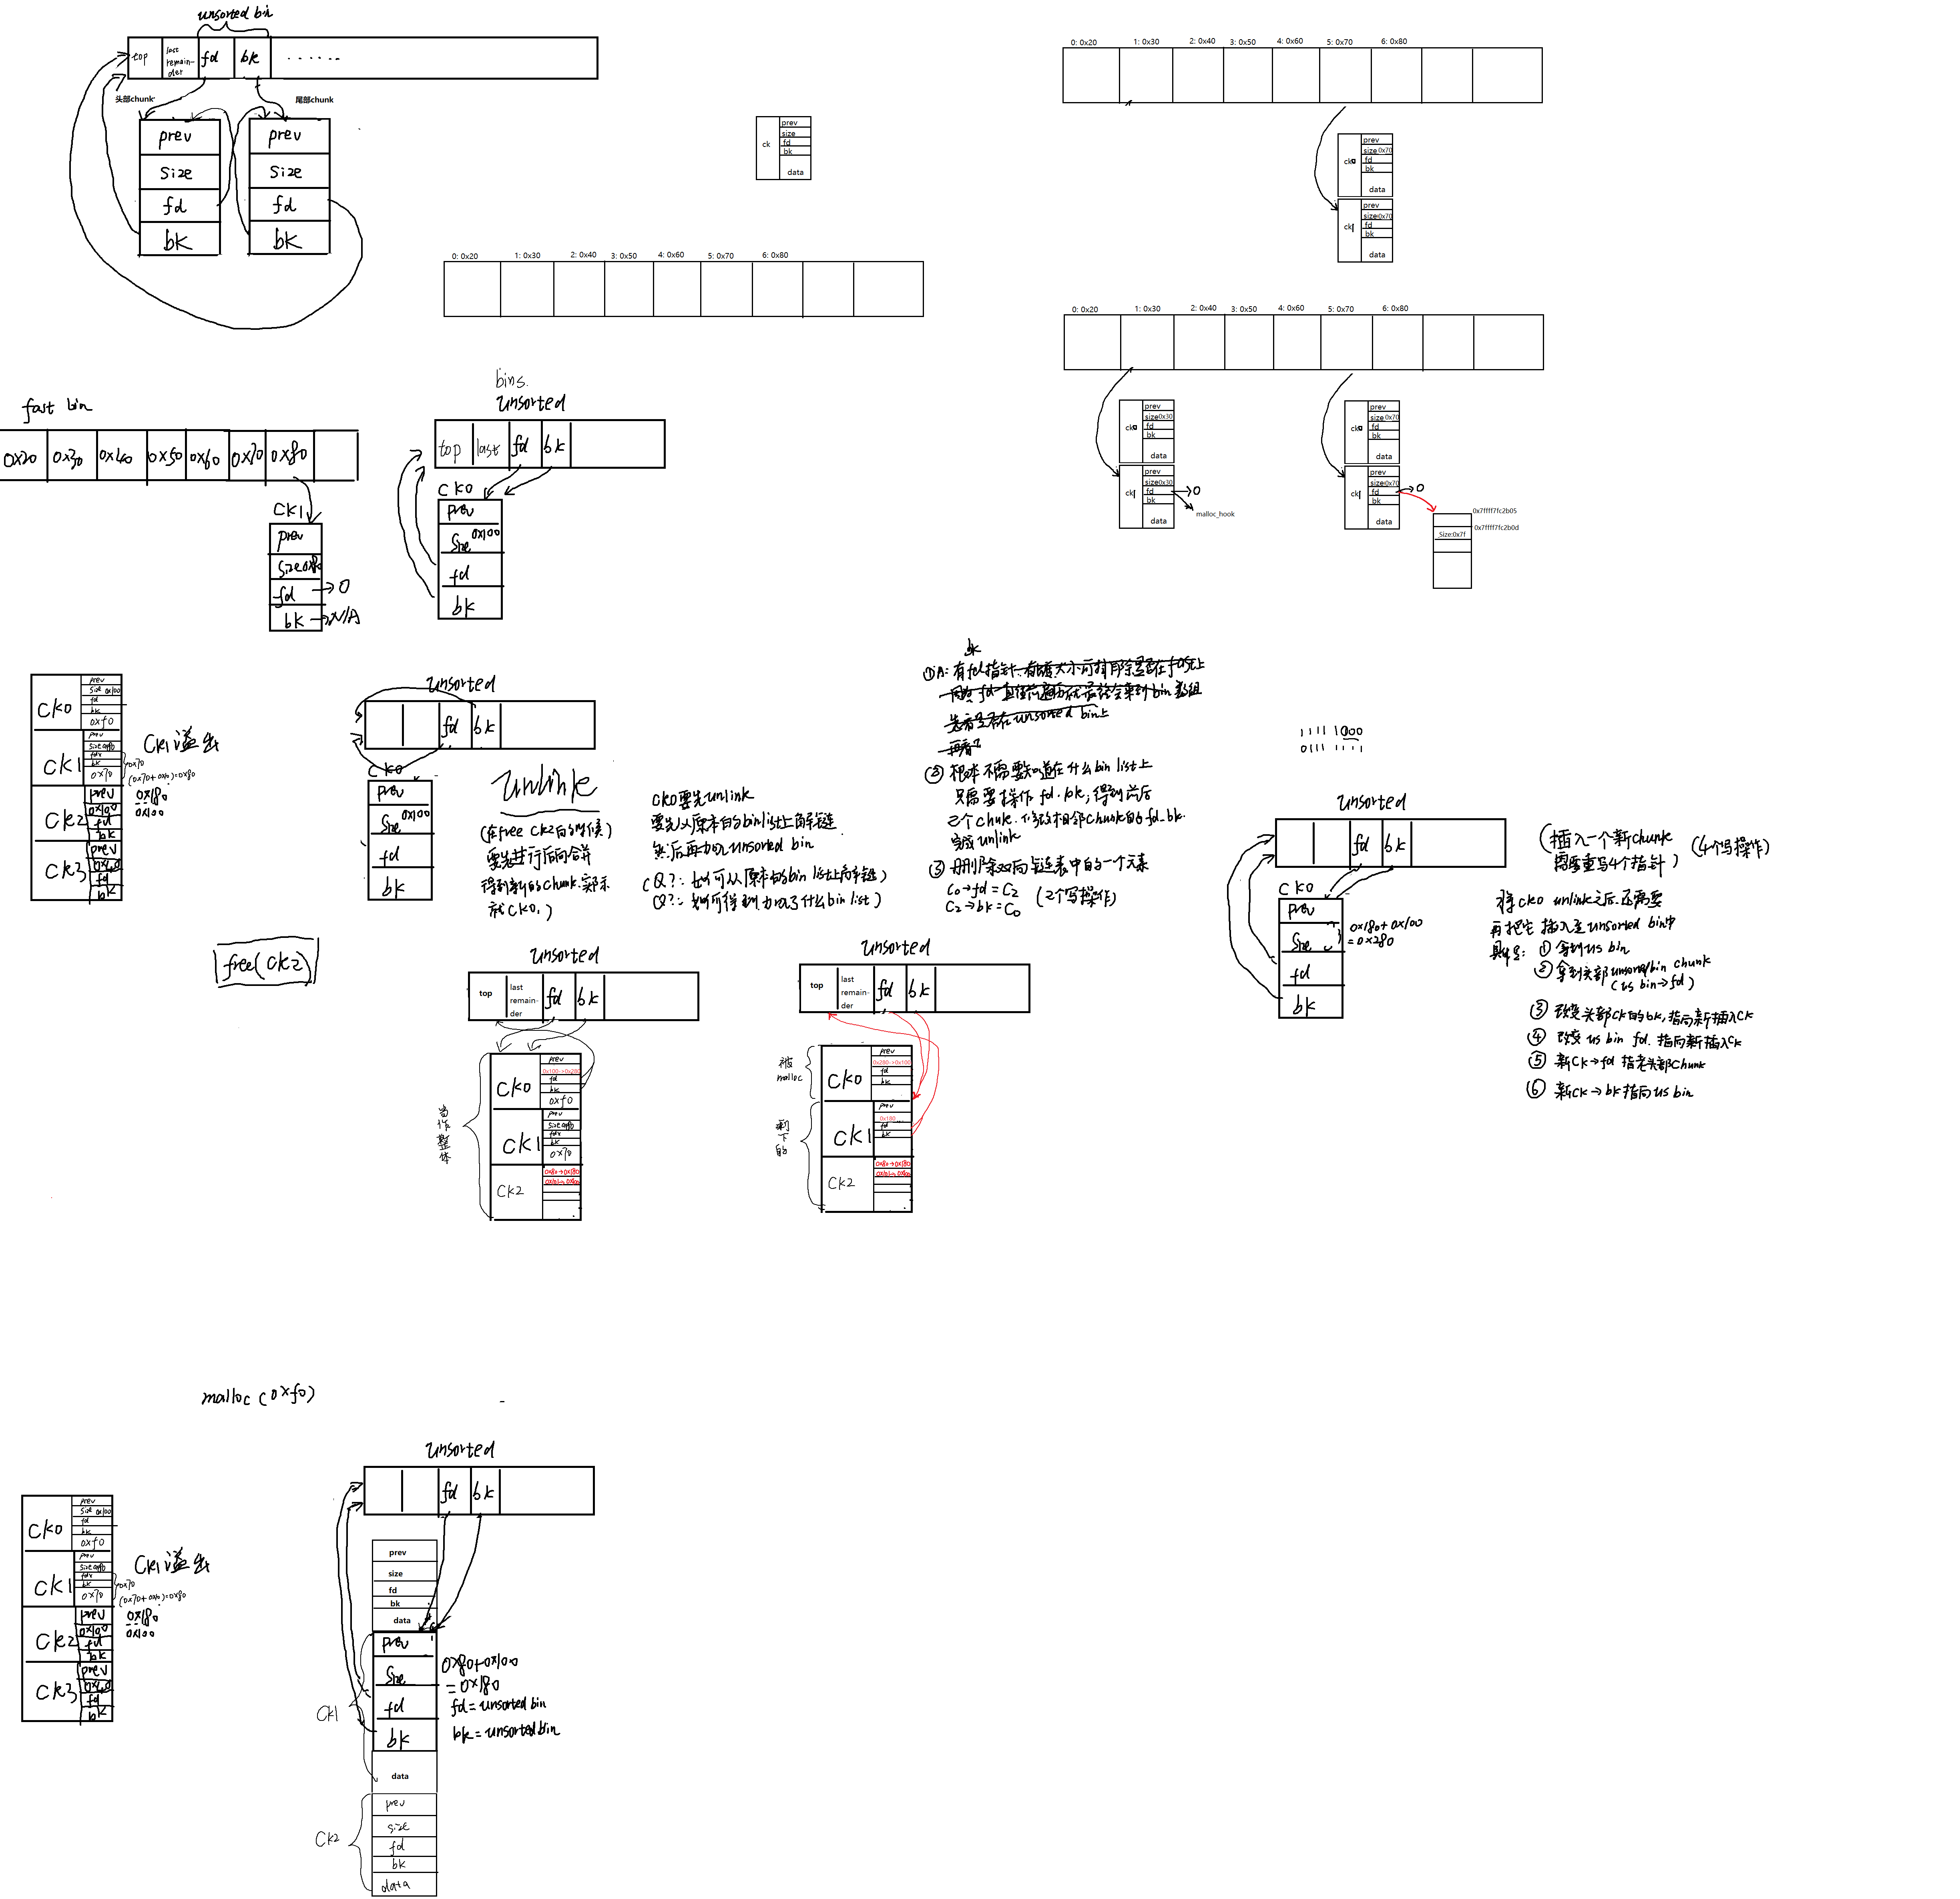 unsorted bin
top
last
remain-
der
fd
bk
......
头部chunk
尾部chunk
prev
size
fd
bk
prev
size
fd
bk
ck
prev
size
fd
bk
data
0: 0x20 1: 0x30 2: 0x40 3: 0x50 4: 0x60 5: 0x70 6: 0x80
0: 0x20 1: 0x30 2: 0x40 3: 0x50 4: 0x60 5: 0x70 6: 0x80
ck0
prev
size 0x70
fd
bk
data
ck1
prev
size 0x70
fd
bk
data
0: 0x20 1: 0x30 2: 0x40 3: 0x50 4: 0x60 5: 0x70 6: 0x80
ck0
prev
size 0x30
fd
bk
data
ck1
prev
size 0x30
fd
bk
data
0
malloc_hook
ck0
prev
size 0x70
fd
bk
data
ck1
prev
size 0x70
fd
bk
data
0
0x7ffff7fc2b05
0x7ffff7fc2b0d
Size:0x7f
fast bin
0x20 0x30 0x40 0x50 0x60 0x70 0x80
CK1
prev
size 0x80
fd → 0
bk → N/A
bins.
unsorted
top last fd bk
CK0
prev
size 0x100
fd
bk
CK0
prev
size 0x100
fd
bk
0xf0
CK1
prev
bk
0x70
0x70
(0x70+0x10)=0x80
CK1溢出
CK2
prev
0x180
0x100
0x100
fd
bk
CK3
prev
fd
bk
unsorted
fd bk
CK0
prev
size 0x100
fd
bk
unlink
(在free ck2的时候)
要先进行后向合并
得到新的chunk.实际
就CK0.)
CK0要先unlink
要先从原本的bin list上解链
然后再加入unsorted bin
(Q?:如何从原本的bin list上解链)
(Q?:如何得到加入了什么bin list)
bk
有fd指针
② 根本不需要知道在什么bin list上
只需要操作 fd.bk,得到前后
二个chunk.修改相邻chunk的fd.bk.
完成unlink
③ 删除双向链表中的一个元素
C0→fd=C2
C2→bk=C0
(2个写操作)
11111 1000
01111 1111
unsorted
fd bk
CK0
prev
size
0x180+0x100
=0x280
fd
bk
(插入一个新chunk
需要重写4个指针)
(4个写操作)
将ck0 unlink之后.还需要
再把它 插入至unsorted bin中
① 拿到us bin
② 拿到头部unsorted bin chunk
(us bin→fd)
③ 改变头部CK的bk,指向新插入CK
④ 改变us bin fd.指向新插入CK
⑤ 新CK→fd 指老头部chunk
⑥ 新CK→bk指向us bin
free(CK2)
unsorted
top
last
remain-
der
fd
bk
当作整体
CK0
prev
0x100->0x280
fd
bk
0xf0
CK1
prev
bk
0x70
CK2
0x80->0x180
unsorted
top
last
remain-
der
fd
bk
被
malloc
CK0
prev
0x280->0x100
fd
bk
剩下的
CK1
prev
0x180
fd
bk
CK2
0x80->0x180
malloc(0xf0)
CK0
prev
size 0x100
fd
bk
0xf0
CK1
prev
bk
0x70
0x70
(0x70+0x10)=0x80
CK1溢出
CK2
prev
0x180
0x100
0x100
fd
bk
CK3
prev
fd
bk
unsorted
fd bk
prev
size
fd
bk
data
CK1
prev
size
fd
bk
data
0x80+0x100
=0x180
fd=unsorted bin
bk=unsorted bin
CK2
prev
size
fd
bk
data